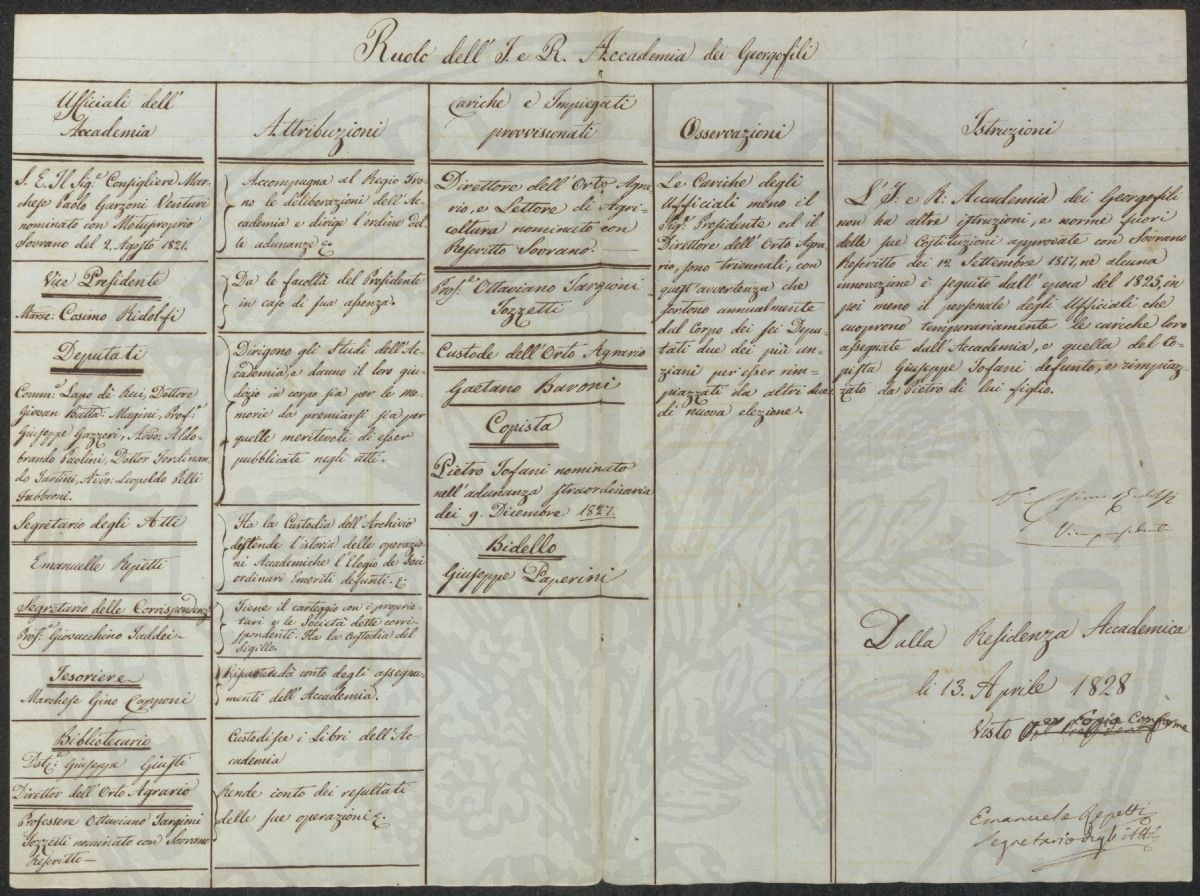 Ruolo dell' I. e R. Accademia dei Georgofili
Ufficiali dell'
Accademia
S. E. Il Sig.e Consigliere Mar-
chese Paolo Garzoni Venturi
nominato con Motuproprio
Sovrano del 2. Agosto 1821.
Vice Presidente
Marse: Cosimo Ridolfi
Deputati
Comm.e Lapo de Ricci, Dottore
Giovan Batta: Magini, Prof.e
Giuseppe Gazzeri, Avvo: Aldo-
brando Paolini, Dottor Ferdinan-
do Tartini, Avvo: Leopoldo Pelli
Fabbroni.
Segretario degli Atti
Emanuelle Repetti
Segretario delle Corrispondenze
Prof.e Giovacchino Taddei-
Tesoriere
Marchese Gino Capponi
Bibliotecario
Giuseppe Giusti
Direttor dell'Orto Agrario
Professere Ottaviano Targioni
Tozzetti nominato con Sovrano
Rescritto-
Attribuzioni
Accompagna al Regio Tro-
no le deliberazioni dell'Ac-
cademia e dirige l'ordine del-
le adunanze &
Da le facoltà del Presidente
in caso di sua assenza.
Dirigono gli Studi dell'Ac-
cademia, e danno il loro giu-
dizio in corpo sia per le me-
morie da premiarsi sia per
quelle meritevoli di esser
pubblicate negli atti.
Ha la Custodia dell'Archivio
destende l'istoria delle operazio-
ni Accademiche l'Elogio de Soci
ordinari Emeriti defunti. &
Tiene il carteggio con i proprie-
tari e le Società dette corri-
spondenti. Ha la custodia del
Sigillo.
dà conto degli assegna-
menti dell'Accademia.
Custodisce i Libri dell'Ac-
cademia
Rende conto dei resultati
delle sue operazioni &.
Cariche e Impiegati
provvisionati
Direttore dell'Orto Agra-
rio, e Lettore di Agri-
coltura nominato con
Rescritto Sovrano.
Prof.e Ottaviano Targioni
Tozzetti
Custode dell'Orto Agrario
Gaetano Baroni
Copista
Pietro Tofani nominato
nell'adunanza straordinaria
dei 9. Dicembre 1827.
Bidello
Giuseppe Paperini
Osservazioni
Le Cariche degli
Ufficiali meno il
Sig.e Presidente ed il
Direttore dell'Orto Agra-
rio, sono triennali, con
quest'avvertenza che
sortono annualmente
dal Corpo dei sei Depu-
tati due dei più an-
ziani per esser rim-
piazzati da altri due
di nuova elezione.
Istruzioni
L'I. e R. Accademia dei Georgofili
non ha altre istruzioni, e norme fuori
delle sue Costituzioni approvate con Sovrano
Rescritto dei 12. Settembre 1817, nè alcuna
innovazione è seguito dall'epoca del 1825, in
poi meno il personale degli Ufficiali che
cuoprono temporariamente le cariche loro
assegnate dall'Accademia, e quella del Co-
pista Giuseppe Tofani defunto, e rimpiaz-
zato da Pietro di lui figlio.
Cosimo Ridolfi
Vicepresidente
Dalla Residenza Accademica
li 13. Aprile 1828
Visto per Copia Conforme
Emanuele Repetti
Segretario degli Atti